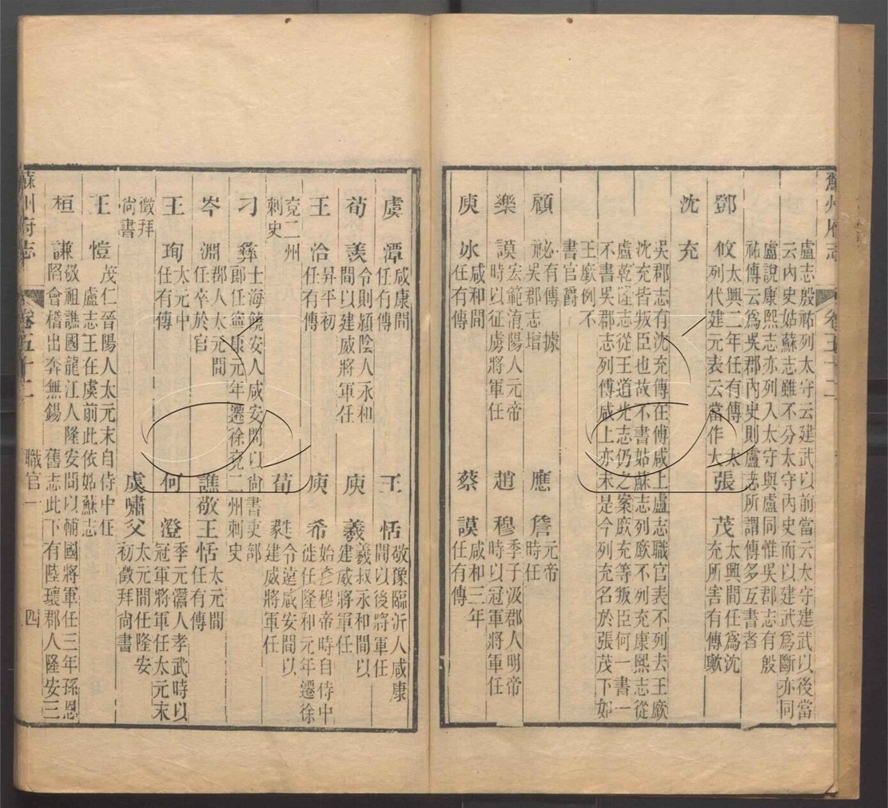 蘇州府志
卷五十二
盧志殷祐列太守云建武以前當云太守建武以後當
云內史姑蘇志雖不分太守內史而以建武爲斷亦同
盧說康熙志亦列入太守與盧同惟吳郡志有殷
祐傳云爲吳郡內史則盧志所謂傳多互書者
鄧攸 太興二年任有傳 太
列代建元表云當作大
張茂 太興間任爲沈
充所害有傳
沈充
吳郡志有沈充傳在傅咸上盧志職官表不列去王廞
沈充皆叛臣也故不書姑蘇志列廞不列充康熙志從
盧乾隆志從王道光志仍之案廞充等叛臣何一書一
不書吳郡志列傅咸上亦未是今列充名於張茂下如
王廞例不
書官爵
顧祕 有傳 據
吳郡志增
應詹 元帝
時任
樂謨 宏範淯陽人元帝
時以征虜將軍任
趙穆 季子汲郡人明帝
時以冠軍將軍任
庾冰 咸和間
任有傳
蔡謨 咸和三年
任有傳
虞潭 咸康間
任有傳
王恬 敬豫臨沂人咸康
間以後將軍任
荀羨 令則潁陰人永和
間以建威將軍任
庾羲 羲叔永和間以
建威將軍任
王洽 昇平初
任有傳
庾希 始彥穆帝時自侍中
徙任隆和元年遷徐
兗二州
刺史
荀蕤 令遠咸安間以
建威將軍任
刁彝 士海饒安人咸安間以尚書吏部
郎任寧康元年遷徐兗二州刺史
岑淵 郡人太元間
任卒於官
譙敬王恬 太元間
任有傳
王珣 太元中
任有傳
何澄 季元灊人孝武時以
冠軍將軍任太元末
徵拜
尚書
虞嘯父 太元間任隆安
初徵拜尚書
王愷 茂仁晉陽人太元末自侍中任
盧志王在虞前此依姑蘇志
桓謙 敬祖譙國龍亢人隆安間以輔國將軍任三年孫恩
陷會稽出奔無錫 舊志此下有陸瓌郡人隆安三
蘇州府志
卷五十二
職官一
四